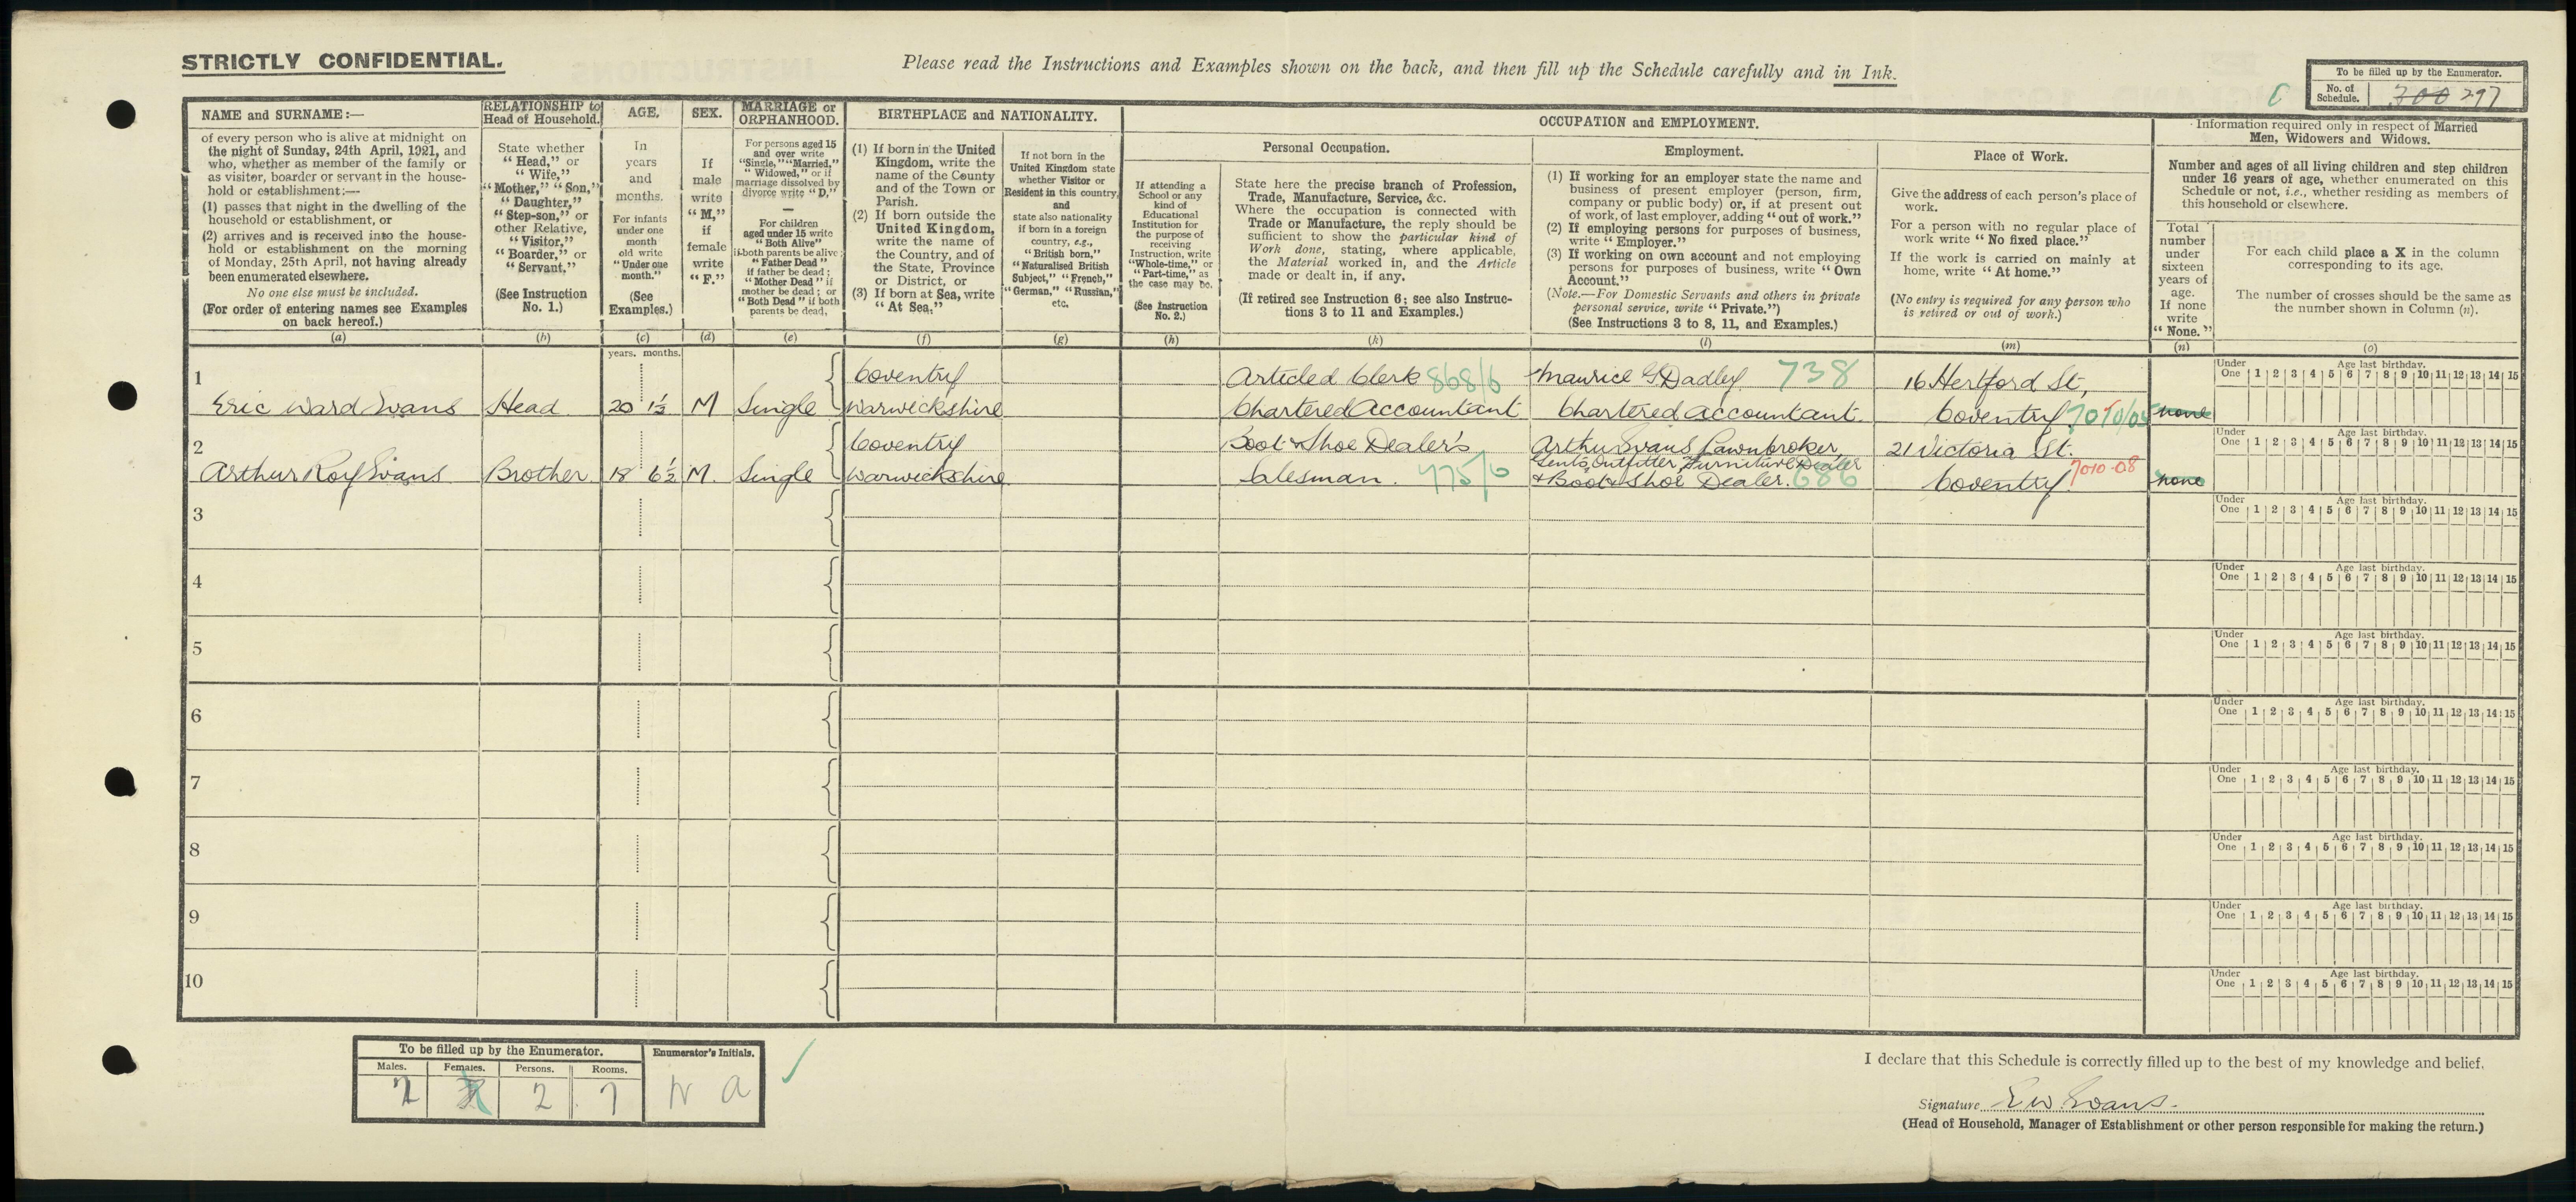 STRICTLY CONFIDENTIAL.
Please read the Instructions and Examples shown on the back, and then fill up the Schedule carefully and in Ink.
To be filled up by the Enumerator.
No. of Schedule. 300 297
NAME and SURNAME:—
of every person who is alive at midnight on
the night of Sunday, 24th April, 1921, and
who, whether as member of the family or
as visitor, boarder or servant in the house-
hold or establishment:—
(1) passes that night in the dwelling of the
household or establishment, or
(2) arrives and is received into the house-
hold or establishment on the morning
of Monday, 25th April, not having already
been enumerated elsewhere.
No one else must be included.
(For order of entering names see Examples
on back hereof.)
(a)
RELATIONSHIP to
Head of Household.
State whether
“Head,” or
“Wife,”
“Mother,” “Son,”
“Daughter,”
“Step-son,” or
other Relative,
“Visitor,”
“Boarder,” or
“Servant.”
(See Instruction
No. 1.)
(b)
AGE.
In
years
and
months.
For infants
under one
month
old write
“Under one
month.”
(See
Examples.)
(c)
SEX.
If
male
write
“M,”
if
female
write
“F.”
(d)
MARRIAGE or
ORPHANHOOD.
For persons aged 15
and over write
“Single,” “Married,”
“Widowed,” or if
marriage dissolved by
divorce write “D.”
—
For children
aged under 15 write
“Both Alive”
if both parents be alive;
“Father Dead”
if father be dead;
“Mother Dead” if
mother be dead; or
“Both Dead” if both
parents be dead.
(e)
BIRTHPLACE and NATIONALITY.
(1) If born in the United
Kingdom, write the
name of the County
and of the Town or
Parish.
(2) If born outside the
United Kingdom,
write the name of
the Country, and of
the State, Province
or District, or
(3) If born at Sea, write
“At Sea.”
(f)
If not born in the
United Kingdom state
whether Visitor or
Resident in this country,
and
state also nationality
if born in a foreign
country, e.g.,
“British born,”
“Naturalised British
Subject,” “French,”
“German,” “Russian,”
etc.
(g)
OCCUPATION and EMPLOYMENT.
If attending a
School or any
kind of
Educational
Institution for
the purpose of
receiving
Instruction, write
“Whole-time,” or
“Part-time,” as
the case may be.
(See Instruction
No. 2.)
(h)
Personal Occupation.
State here the precise branch of Profession,
Trade, Manufacture, Service, &c.
Where the occupation is connected with
Trade or Manufacture, the reply should be
sufficient to show the particular kind of
Work done, stating, where applicable,
the Material worked in, and the Article
made or dealt in, if any.
(If retired see Instruction 6; see also Instruc-
tions 3 to 11 and Examples.)
(k)
Employment.
(1) If working for an employer state the name and
business of present employer (person, firm,
company or public body) or, if at present out
of work, of last employer, adding “out of work.”
(2) If employing persons for purposes of business,
write “Employer.”
(3) If working on own account and not employing
persons for purposes of business, write “Own
Account.”
(Note.—For Domestic Servants and others in private
personal service, write “Private.”)
(See Instructions 3 to 8, 11, and Examples.)
(l)
Place of Work.
Give the address of each person's place of
work.
For a person with no regular place of
work write “No fixed place.”
If the work is carried on mainly at
home, write “At home.”
(No entry is required for any person who
is retired or out of work.)
(m)
Information required only in respect of Married
Men, Widowers and Widows.
Number and ages of all living children and step children
under 16 years of age, whether enumerated on this
Schedule or not, i.e., whether residing as members of
this household or elsewhere.
Total
number
under
sixteen
years of
age.
If none
write
“None.”
(n)
For each child place a X in the column
corresponding to its age.
The number of crosses should be the same as
the number shown in Column (n).
(o)
years. months.
1
Eric Ward Evans Head 20 1½ M Single Coventry Warwickshire
Articled Clerk 868/6
Chartered Accountant
Maurice G Dadley 738
Chartered Accountant.
16 Hertford St,
Coventry none
Under One Age last birthday. 1 2 3 4 5 6 7 8 9 10 11 12 13 14 15
2
Arthur Roy Evans Brother 18 6½ M. Single Coventry Warwickshire
Boot & Shoe Dealer's
Salesman. 775/0
Arthur Evans Pawnbroker,
Gents Outfitter, Furniture Dealer
& Boot & Shoe Dealer. 686
21 Victoria St.
Coventry. 7010-08 none
Under One Age last birthday. 1 2 3 4 5 6 7 8 9 10 11 12 13 14 15
3
Under One Age last birthday. 1 2 3 4 5 6 7 8 9 10 11 12 13 14 15
4
Under One Age last birthday. 1 2 3 4 5 6 7 8 9 10 11 12 13 14 15
5
Under One Age last birthday. 1 2 3 4 5 6 7 8 9 10 11 12 13 14 15
6
Under One Age last birthday. 1 2 3 4 5 6 7 8 9 10 11 12 13 14 15
7
Under One Age last birthday. 1 2 3 4 5 6 7 8 9 10 11 12 13 14 15
8
Under One Age last birthday. 1 2 3 4 5 6 7 8 9 10 11 12 13 14 15
9
Under One Age last birthday. 1 2 3 4 5 6 7 8 9 10 11 12 13 14 15
10
Under One Age last birthday. 1 2 3 4 5 6 7 8 9 10 11 12 13 14 15
To be filled up by the Enumerator.
Males. Females. Persons. Rooms.
2 2 7
Enumerator's Initials.
I declare that this Schedule is correctly filled up to the best of my knowledge and belief.
Signature E W. Evans.
(Head of Household, Manager of Establishment or other person responsible for making the return.)